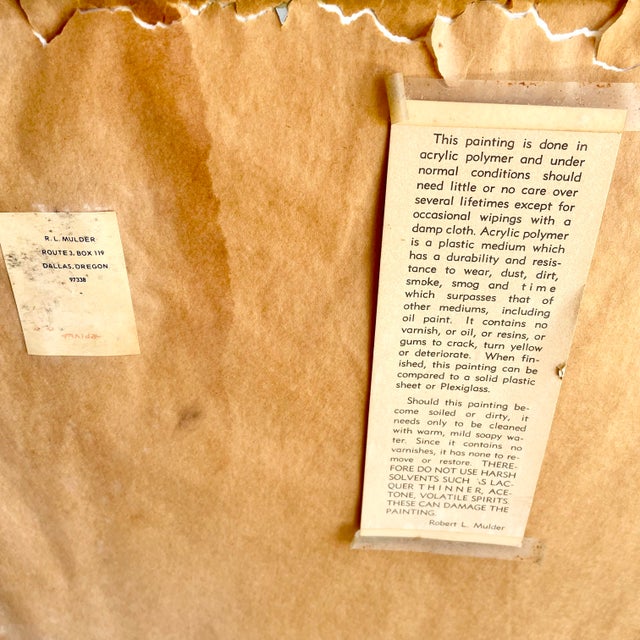 R. L. MULDER
ROUTE 3, BOX 119
DALLAS, OREGON
97338
This painting is done in
acrylic polymer and under
normal conditions should
need little or no care over
several lifetimes except for
occasional wipings with a
damp cloth. Acrylic polymer
is a plastic medium which
has a durability and resis-
tance to wear, dust, dirt,
smoke, smog and time
which surpasses that of
other mediums, including
oil paint. It contains no
varnish, or oil, or resins, or
gums to crack, turn yellow
or deteriorate. When fin-
ished, this painting can be
compared to a solid plastic
sheet or Plexiglass.
Should this painting be-
come soiled or dirty, it
needs only to be cleaned
with warm, mild soapy wa-
ter. Since it contains no
varnishes, it has none to re-
move or restore. THERE-
FORE DO NOT USE HARSH
SOLVENTS SUCH AS LAC-
QUER THINNER, ACE-
TONE, VOLATILE SPIRITS.
THESE CAN DAMAGE THE
PAINTING.
Robert L. Mulder